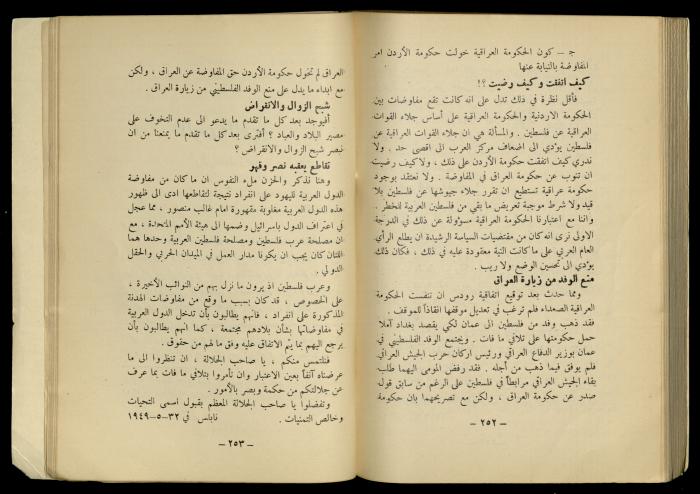 ج – كون الحكومة العراقية خولت حكومة الأردن امر
المفاوضة بالنيابة عنها
كيف اتفقت وكيف رضيت ؟!
فأقل نظرة في ذلك تدل على انه كانت تقع مفاوضات بين
الحكومة الاردنية والحكومة العراقية على أساس جلاء القوات
العراقية عن فلسطين . والمسألة هي ان جلاء القوات العراقية عن
فلسطين يؤدي الى اضعاف مركز العرب الى اقصى حد . ولا
ندري كيف اتفقت حكومة الأردن على ذلك ، ولا كيف رضيت
ان تنوب عن حكومة العراق في المفاوضة . ولا نعتقد بوجود
حكومة عراقية تستطيع ان تقرر جلاء جيوشها عن فلسطين بلا
قيد ولا شرط موجبة تعريض ما بقي من فلسطين العربية للخطر .
واننا مع اعتبارنا الحكومة العراقية مسؤولة عن ذلك في الدرجة
الاولى نرى انه كان من مقتضيات السياسة الرشيدة ان يطلع الرأي
العام العربي على ما كانت النية معقودة عليه في ذلك ، فكان ذلك
يؤدي الى تحسين الوضع ولا ريب .
منع الوفد من زيارة العراق
ومما حدث بعد توقيع اتفاقية رودس ان تنفست الحكومة
العراقية الصعداء فلم ترغب في تعديل موقفها انقاذاً للموقف .
فقد ذهب وفد من فلسطين الى عمان لكي يقصد بغداد آملا
حمل حكومتها على تلافي ما فات . ويجتمع الوفد الفلسطيني في
عمان بوزير الدفاع العراقي ورئيس اركان حرب الجيش العراقي
فلم يوفق فيما ذهب من أجله . فقد رفض المومى اليهما طلب
بقاء الجيش العراقي مرابطاً في فلسطين على الرغم من سابق قول
صدر عن حكومة العراق ، ولكن مع تصريحهما بان حكومة
– ٢٥٢ –
العراق لم تخول حكومة الأردن حق المفاوضة عن العراق ، ولكن
مع ابداء ما يدل على منع الوفد الفلسطيني من زيارة العراق .
شبح الزوال والانقراض
أفيوجد بعد كل ما تقدم ما يدعو الى عدم التخوف على
مصير البلاد والعباد ؟ أفترى بعد كل ما تقدم ما يمنعنا من ان
نبصر شبح الزوال والانقراض ؟
تقاطع يعقبه نصر وقهر
وهنا نذكر والحزن ملء النفوس ان ما كان من مفاوضة
الدول العربية لليهود على انفراد نتيجة لتقاطعها ادى الى ظهور
هذه الدول العربية مغلوبة مقهورة امام غالب منصور ، مما عجل
في اعتراف الدول باسرائيل وضمها الى هيئة الأمم المتحدة ، مع
ان مصلحة عرب فلسطين ومصلحة فلسطين العربية وحدها هما
اللتان كان يجب ان يكونا مدار العمل في الميدان الحربي والحقل
الدولي .
وعرب فلسطين اذ يرون ما نزل بهم من النوائب الأخيرة ،
على الخصوص ، قد كان بسبب ما وقع من مفاوضات الهدنة
المذكورة على انفراد ، فانهم يطالبون بأن تدخل الدول العربية
في مفاوضاتها بشأن بلادهم مجتمعة ، كما انهم يطالبون بأن
يرجع اليهم بما يتم الاتفاق عليه وفق ما لهم من حقوق .
فنلتمس منكم ، يا صاحب الجلالة ، ان تنظروا الى ما
عرضناه آنفاً بعين الاعتبار وان تأمروا بتلافي ما فات بما عرف
عن جلالتكم من حكمة وبصر بالأمور .
وتفضلوا يا صاحب الجلالة المعظم بقبول اسمى التحيات
وخالص التمنيات . نابلس في ٣٢–٥–١٩٤٩
– ٢٥٣ –